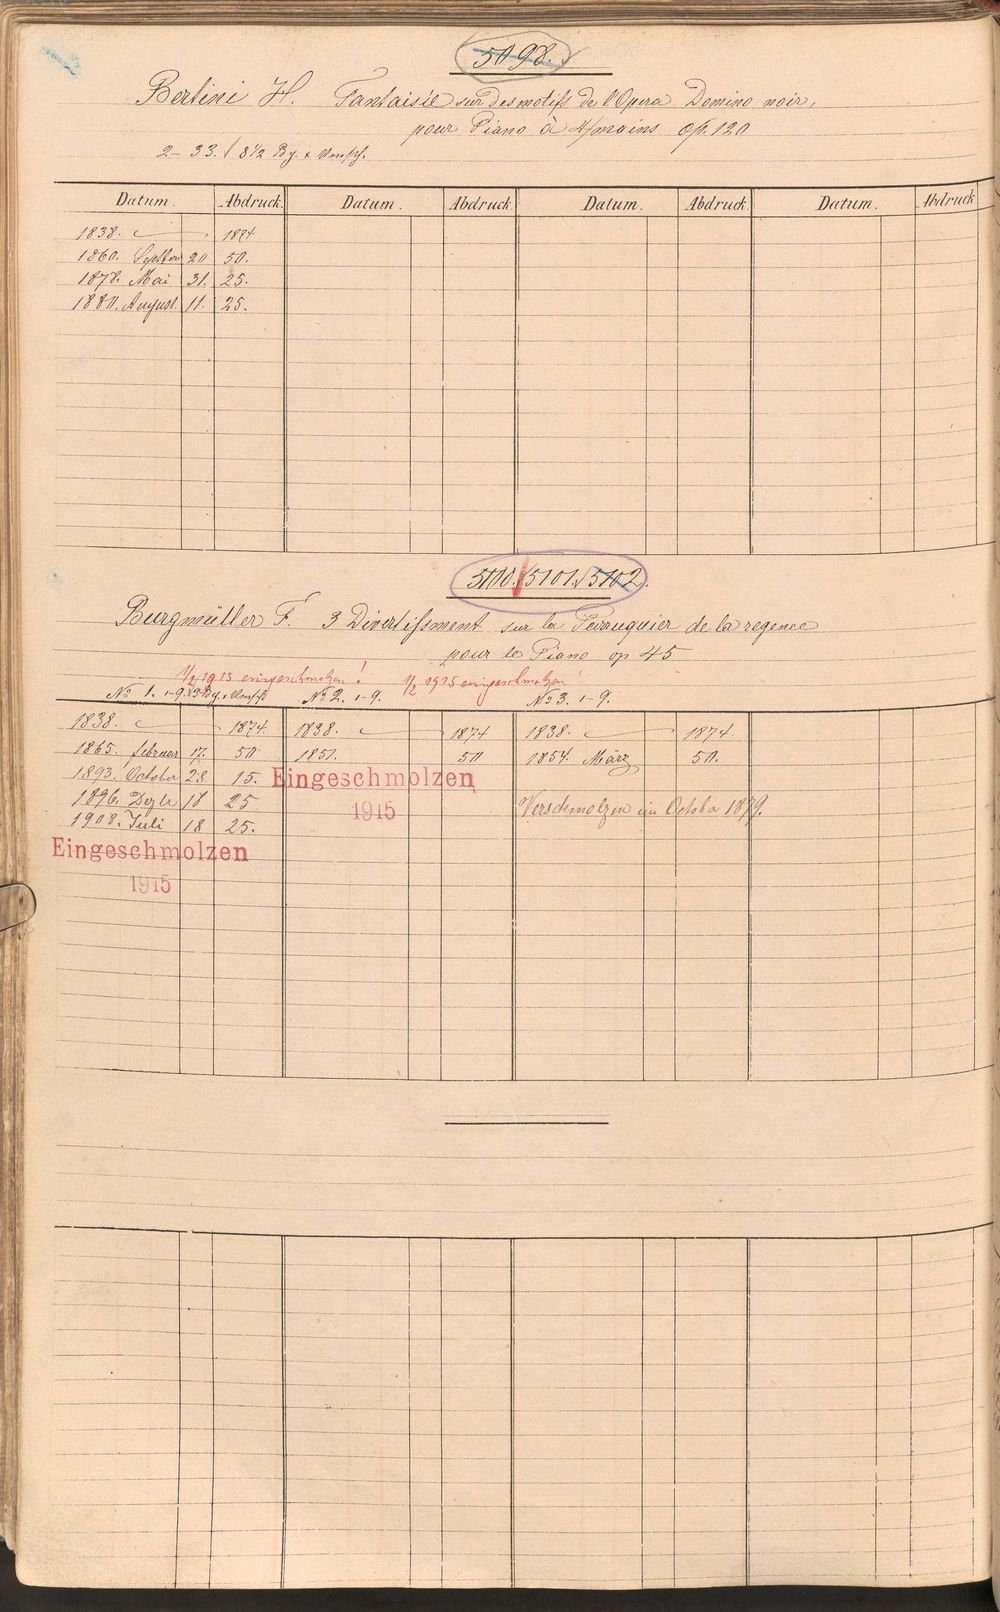 5098.
Bertini H. Fantaisie sur des motifs de l'Opera Domino noir,
pour Piano à 4/mains op. 120
2-33. / 8 1/2 Bg. & Umschl.
Datum. Abdruck. Datum. Abdruck. Datum. Abdruck. Datum. Abdruck
1838. — 1874
1860. Septber 20 50.
1878. Mai 31. 25.
1880. August 11. 25.
5100./5101./5102.
Burgmüller F. 3 Divertifsment sur la Perruquier de la regence
pour le Piano op 45
1/2 1915 eingeschmolzen! 1/2 1915 eingeschmolzen!
No 1. 1-9. 3 Bg. & Umschl. No 2. 1-9. No 3. 1-9.
1838. — 1874. 1838. — 1874 1838. — 1874.
1865. februar 17. 50 1851. 50 1854. März 50.
1893. October 28 15. Eingeschmolzen
1896. Dezbr 18 25 1915 Verschmolzen im October 1879.
1908. Juli 18 25.
Eingeschmolzen
1915